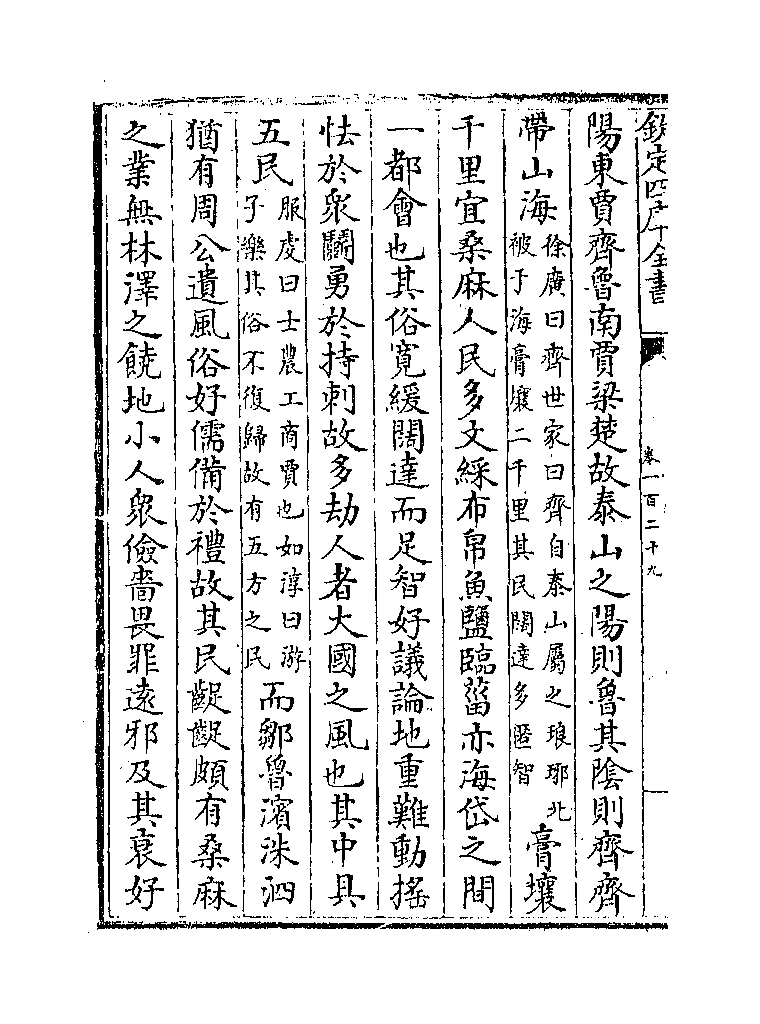 欽定四庫全書
卷一百二十九
陽東賈齊魯南賈梁楚故泰山之陽則魯其陰則齊齊
帶山海
徐廣曰齊世家曰齊自泰山屬之琅琊北
被于海膏壤二千里其民闊達多匿智
膏壤
千里宜桑麻人民多文綵布帛魚鹽臨菑亦海岱之間
一都會也其俗寛緩闊達而足智好議論地重難動搖
怯於衆鬬勇於持刺故多劫人者大國之風也其中具
五民
服虔曰士農工商賈也如淳曰游
子樂其俗不復歸故有五方之民
而鄒魯濱洙泗
猶有周公遺風俗好儒備於禮故其民齪齪頗有桑麻
之業無林澤之饒地小人衆儉嗇畏罪遠邪及其衰好